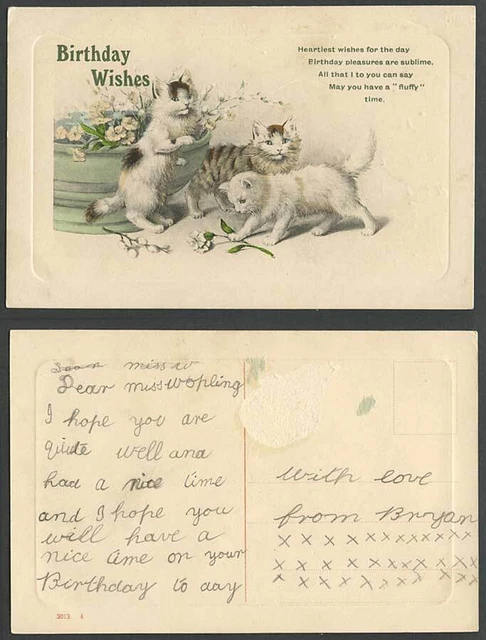 Birthday
Wishes
Heartiest wishes for the day
Birthday pleasures are sublime.
All that I to you can say
May you have a "fluffy"
time.
miss w
Dear miss wopling
I hope you are
quite well and
had a nice time
and I hope you
will have a
nice time on your
Birthday to day
with love
from Bryan
x x x x x x x x x x x
x x x x x x x x x x x
x x x x x x x x x x x
3013. A